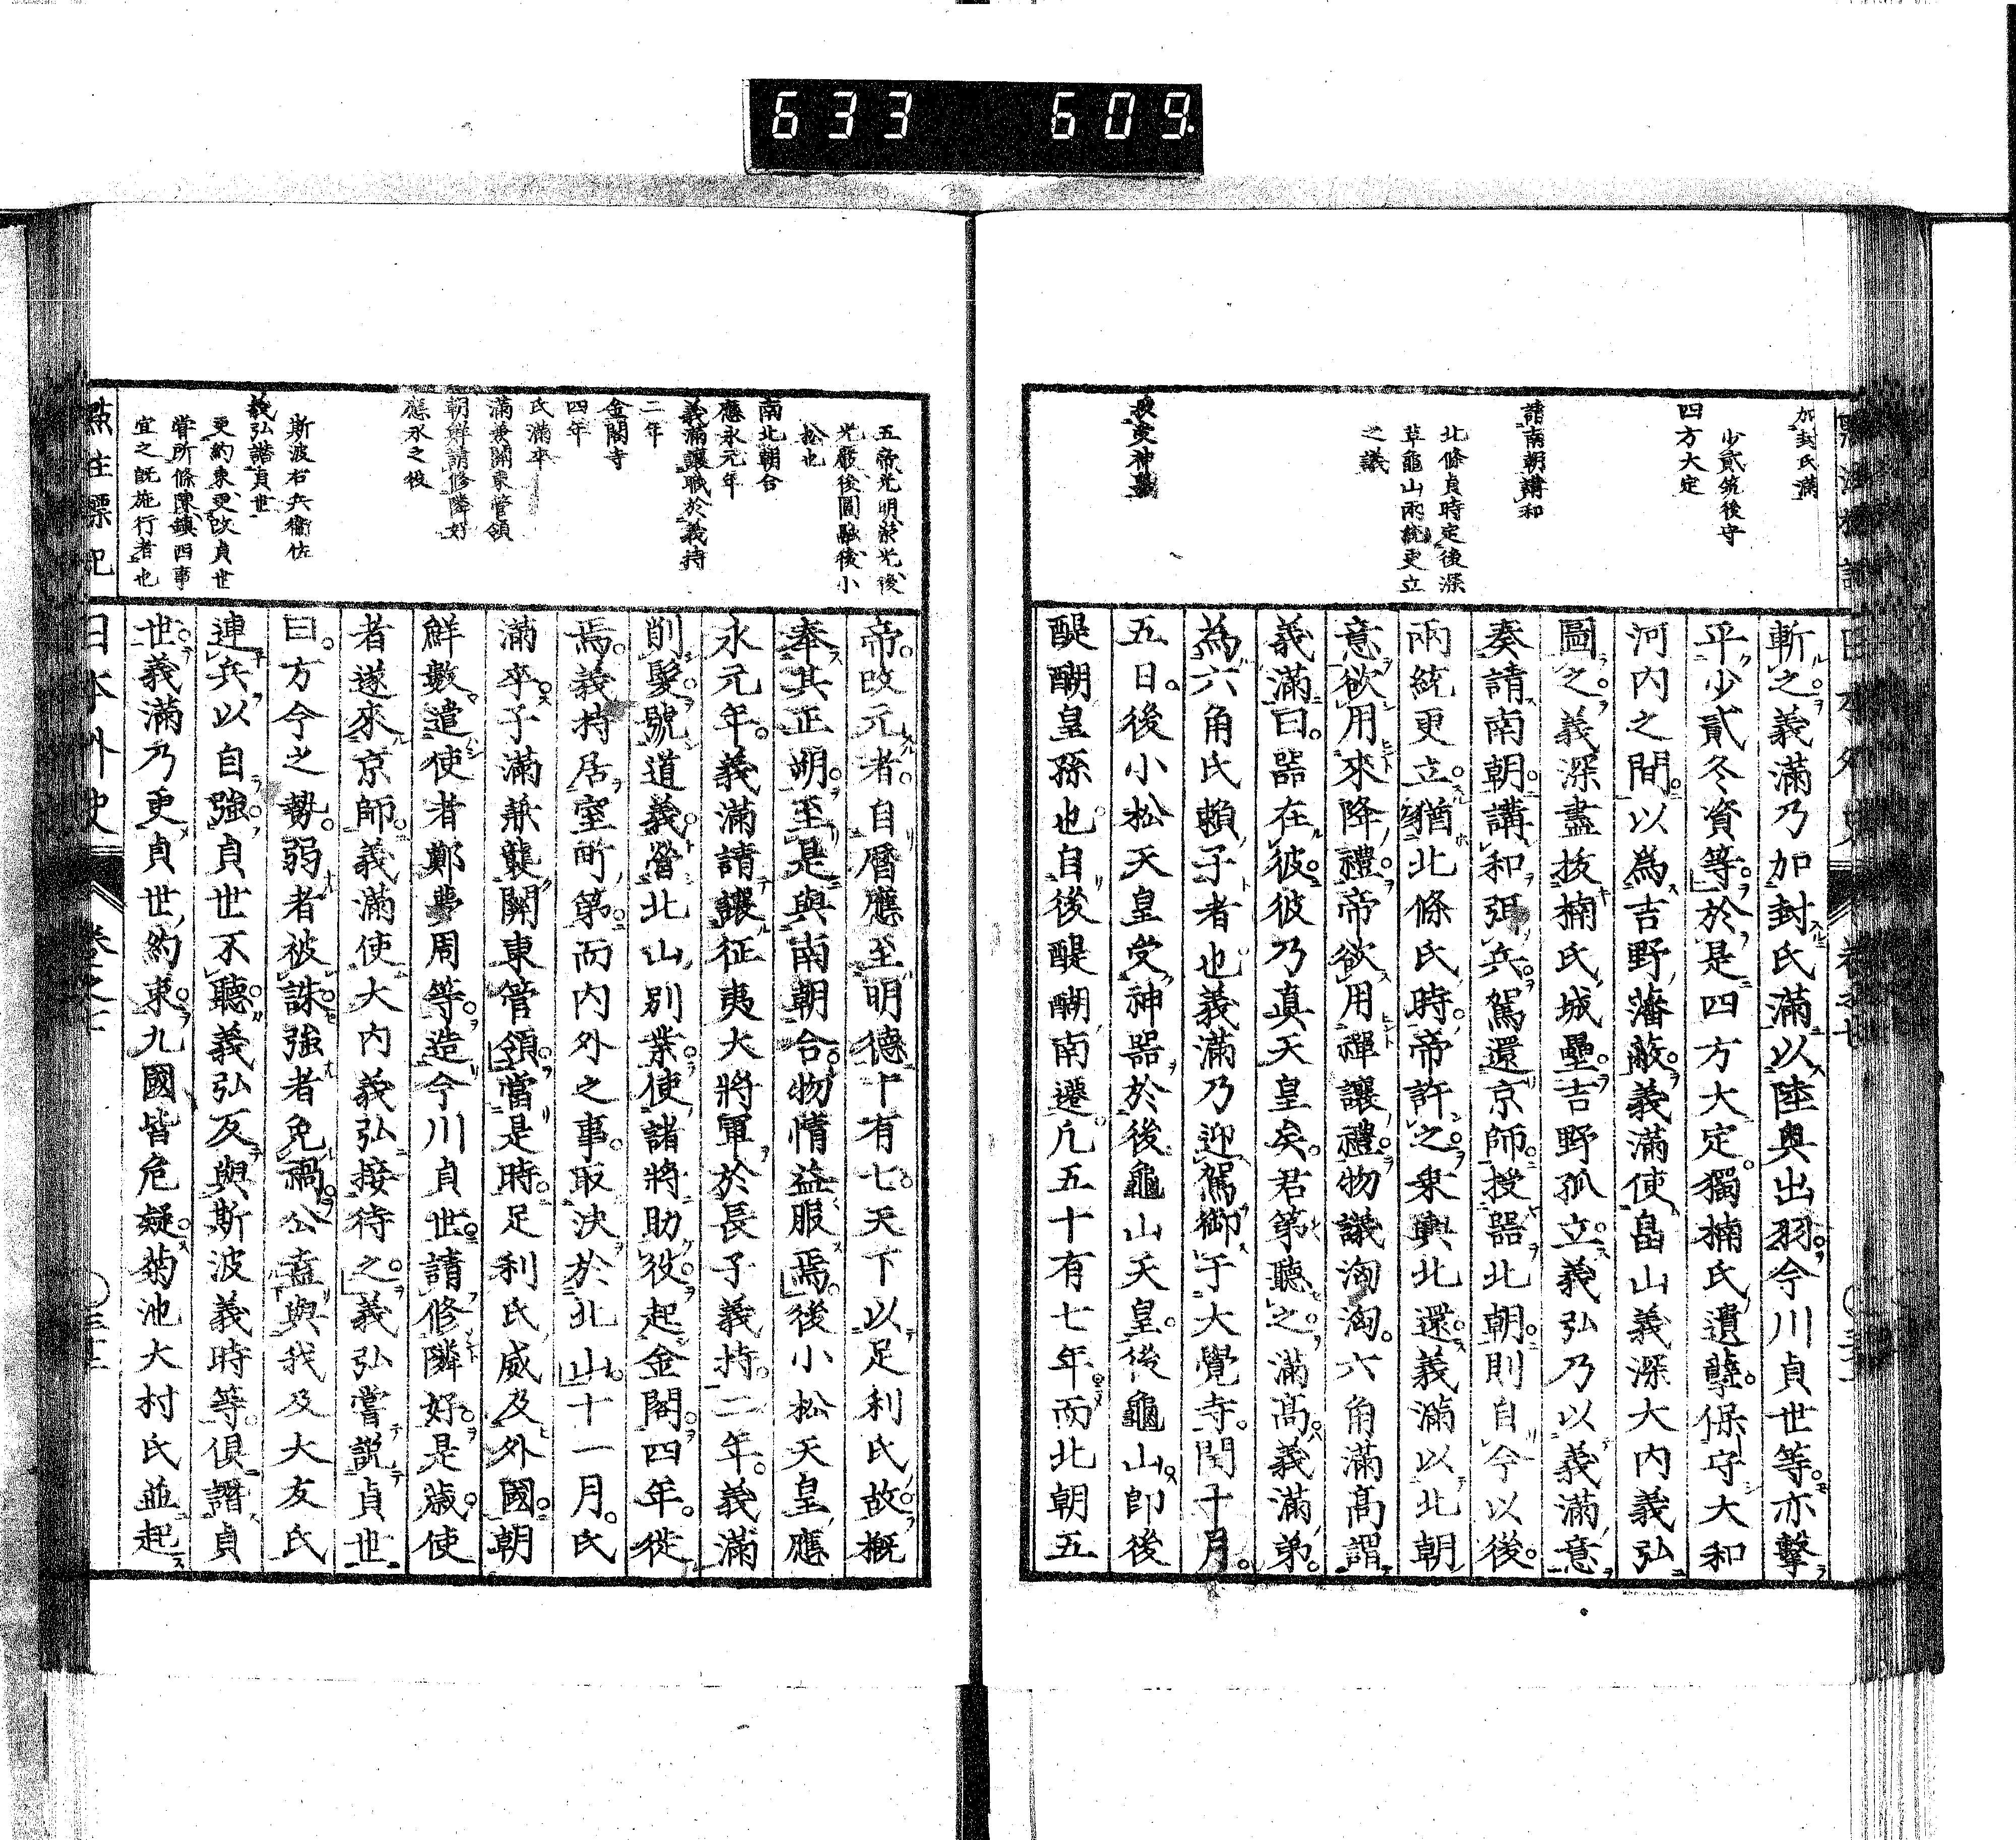 633 609.
加封氏滿
少貳筑後守
四方大定
請南朝講和
北條貞時定後深
草龜山兩統更立
之議
斬之義滿乃加封氏滿以陸奧出羽今川貞世等亦擊
平少貳冬資等於是四方大定獨楠氏遺孽保守大和
河內之間以為吉野藩蔽義滿使畠山義深大內義弘
圖之義深盡拔楠氏城壘吉野孤立義弘乃以義滿意
奏請南朝講和弭兵駕還京師授器北朝則自今以後
兩統更立猶北條氏時帝許之東輿北還義滿以北朝
意欲用來降禮帝欲用禪讓禮物議洶洶六角滿高謂
義滿曰器在彼彼乃真天皇矣君第聽之滿高義滿弟
為六角氏賴子者也義滿乃迎駕御于大覺寺閏十月
五日後小松天皇受神器於後龜山天皇後龜山卽後
醍醐皇孫也自後醍醐南遷凡五十有七年而北朝五
五帝光明崇光後
光嚴後圓融後小
松也
南北朝合
應永元年
義滿讓職於義持
二年
金閣寺
四年
氏滿卒
滿兼關東管領
朝鮮請修隣好
應永之役
斯波右兵衞佐
義弘譖貞世
更約束更改貞世
嘗所條陳鎮西事
宜之既施行者也
帝改元者自曆應至明德十有七天下以足利氏故概
奉其正朔至是與南朝合物情益服焉後小松天皇應
永元年義滿請讓征夷大將軍於長子義持二年義滿
削髮號道義營北山別業使諸將助役起金閣四年徙
焉義持居室町第而內外之事取決於北山十一月氏
滿卒子滿兼襲關東管領當是時足利氏威及外國朝
鮮數遣使者鄭夢周等造今川貞世請修隣好是歲使
者遂來京師義滿使大內義弘接待之義弘嘗說貞世
曰方今之勢弱者被誅強者免禍公盍與我及大友氏
連兵以自強貞世不聽義弘反與斯波義時等俱譖貞
世義滿乃更貞世約束九國皆危疑菊池大村氏並起
標記
日本外史